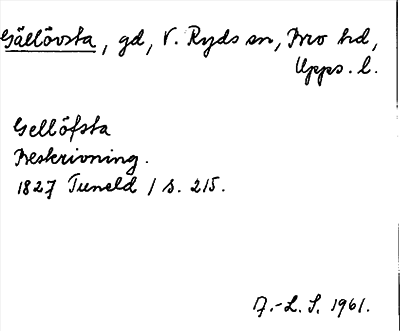 Gällövsta, gd, V. Ryds sn, Bro hd,
Upps. l.
Gellöfsta
Beskrivning.
1827 Tuneld 1 s. 215.
A.-L. S. 1961.